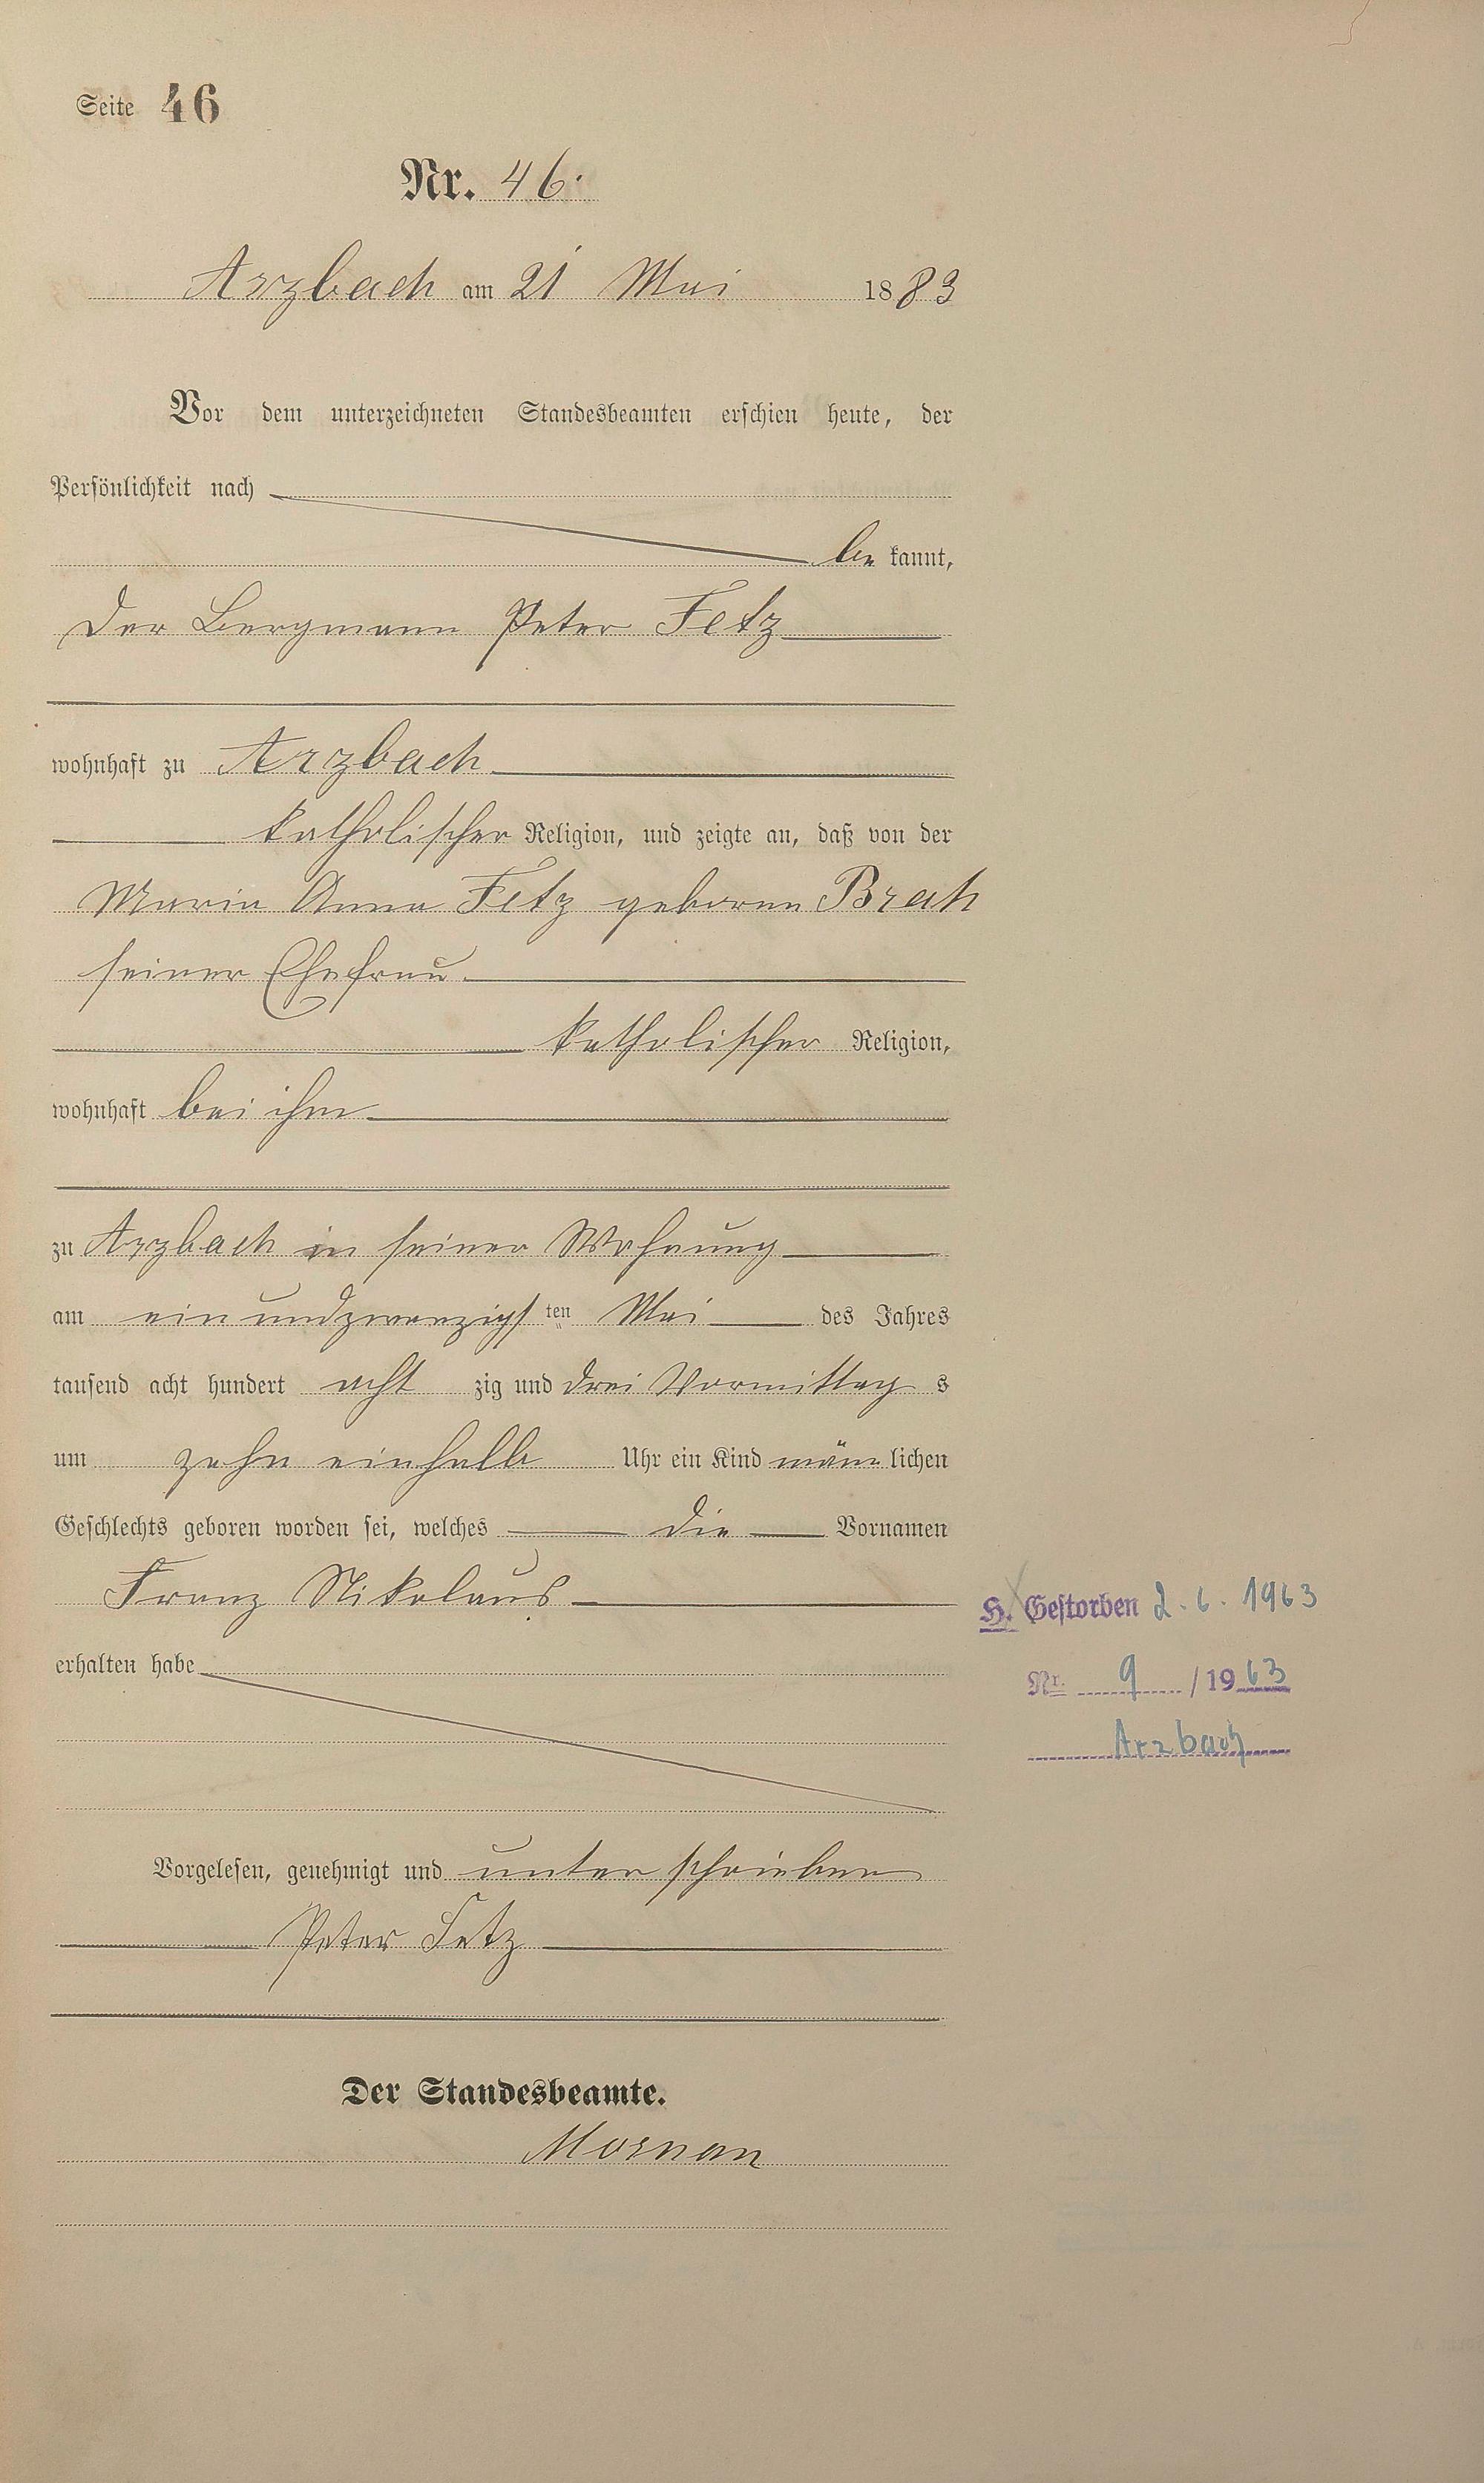 Seite 46
Nr. 46.
Arzbach am 21 Mai 1883
Vor dem unterzeichneten Standesbeamten erschien heute, der
Persönlichkeit nach
be kannt,
der Bergmann Peter Fetz
wohnhaft zu Arzbach
katholischer Religion, und zeigte an, daß von der
Maria Anna Fetz geborene Brah
seiner Ehefrau
katholischer Religion,
wohnhaft bei ihm
zu Arzbach in seiner Wohnung
am ein undzwanzigsten Mai des Jahres
tausend acht hundert acht zig und drei Vormittag s
um zehn einhalb Uhr ein Kind männlichen
Geschlechts geboren worden sei, welches die Vornamen
Franz Nikolaus
H. Gestorben 2.6.1963
erhalten habe
Nr. 9 / 1963
Arzbach
Vorgelesen, genehmigt und unterschrieben
Peter Fetz
Der Standesbeamte.